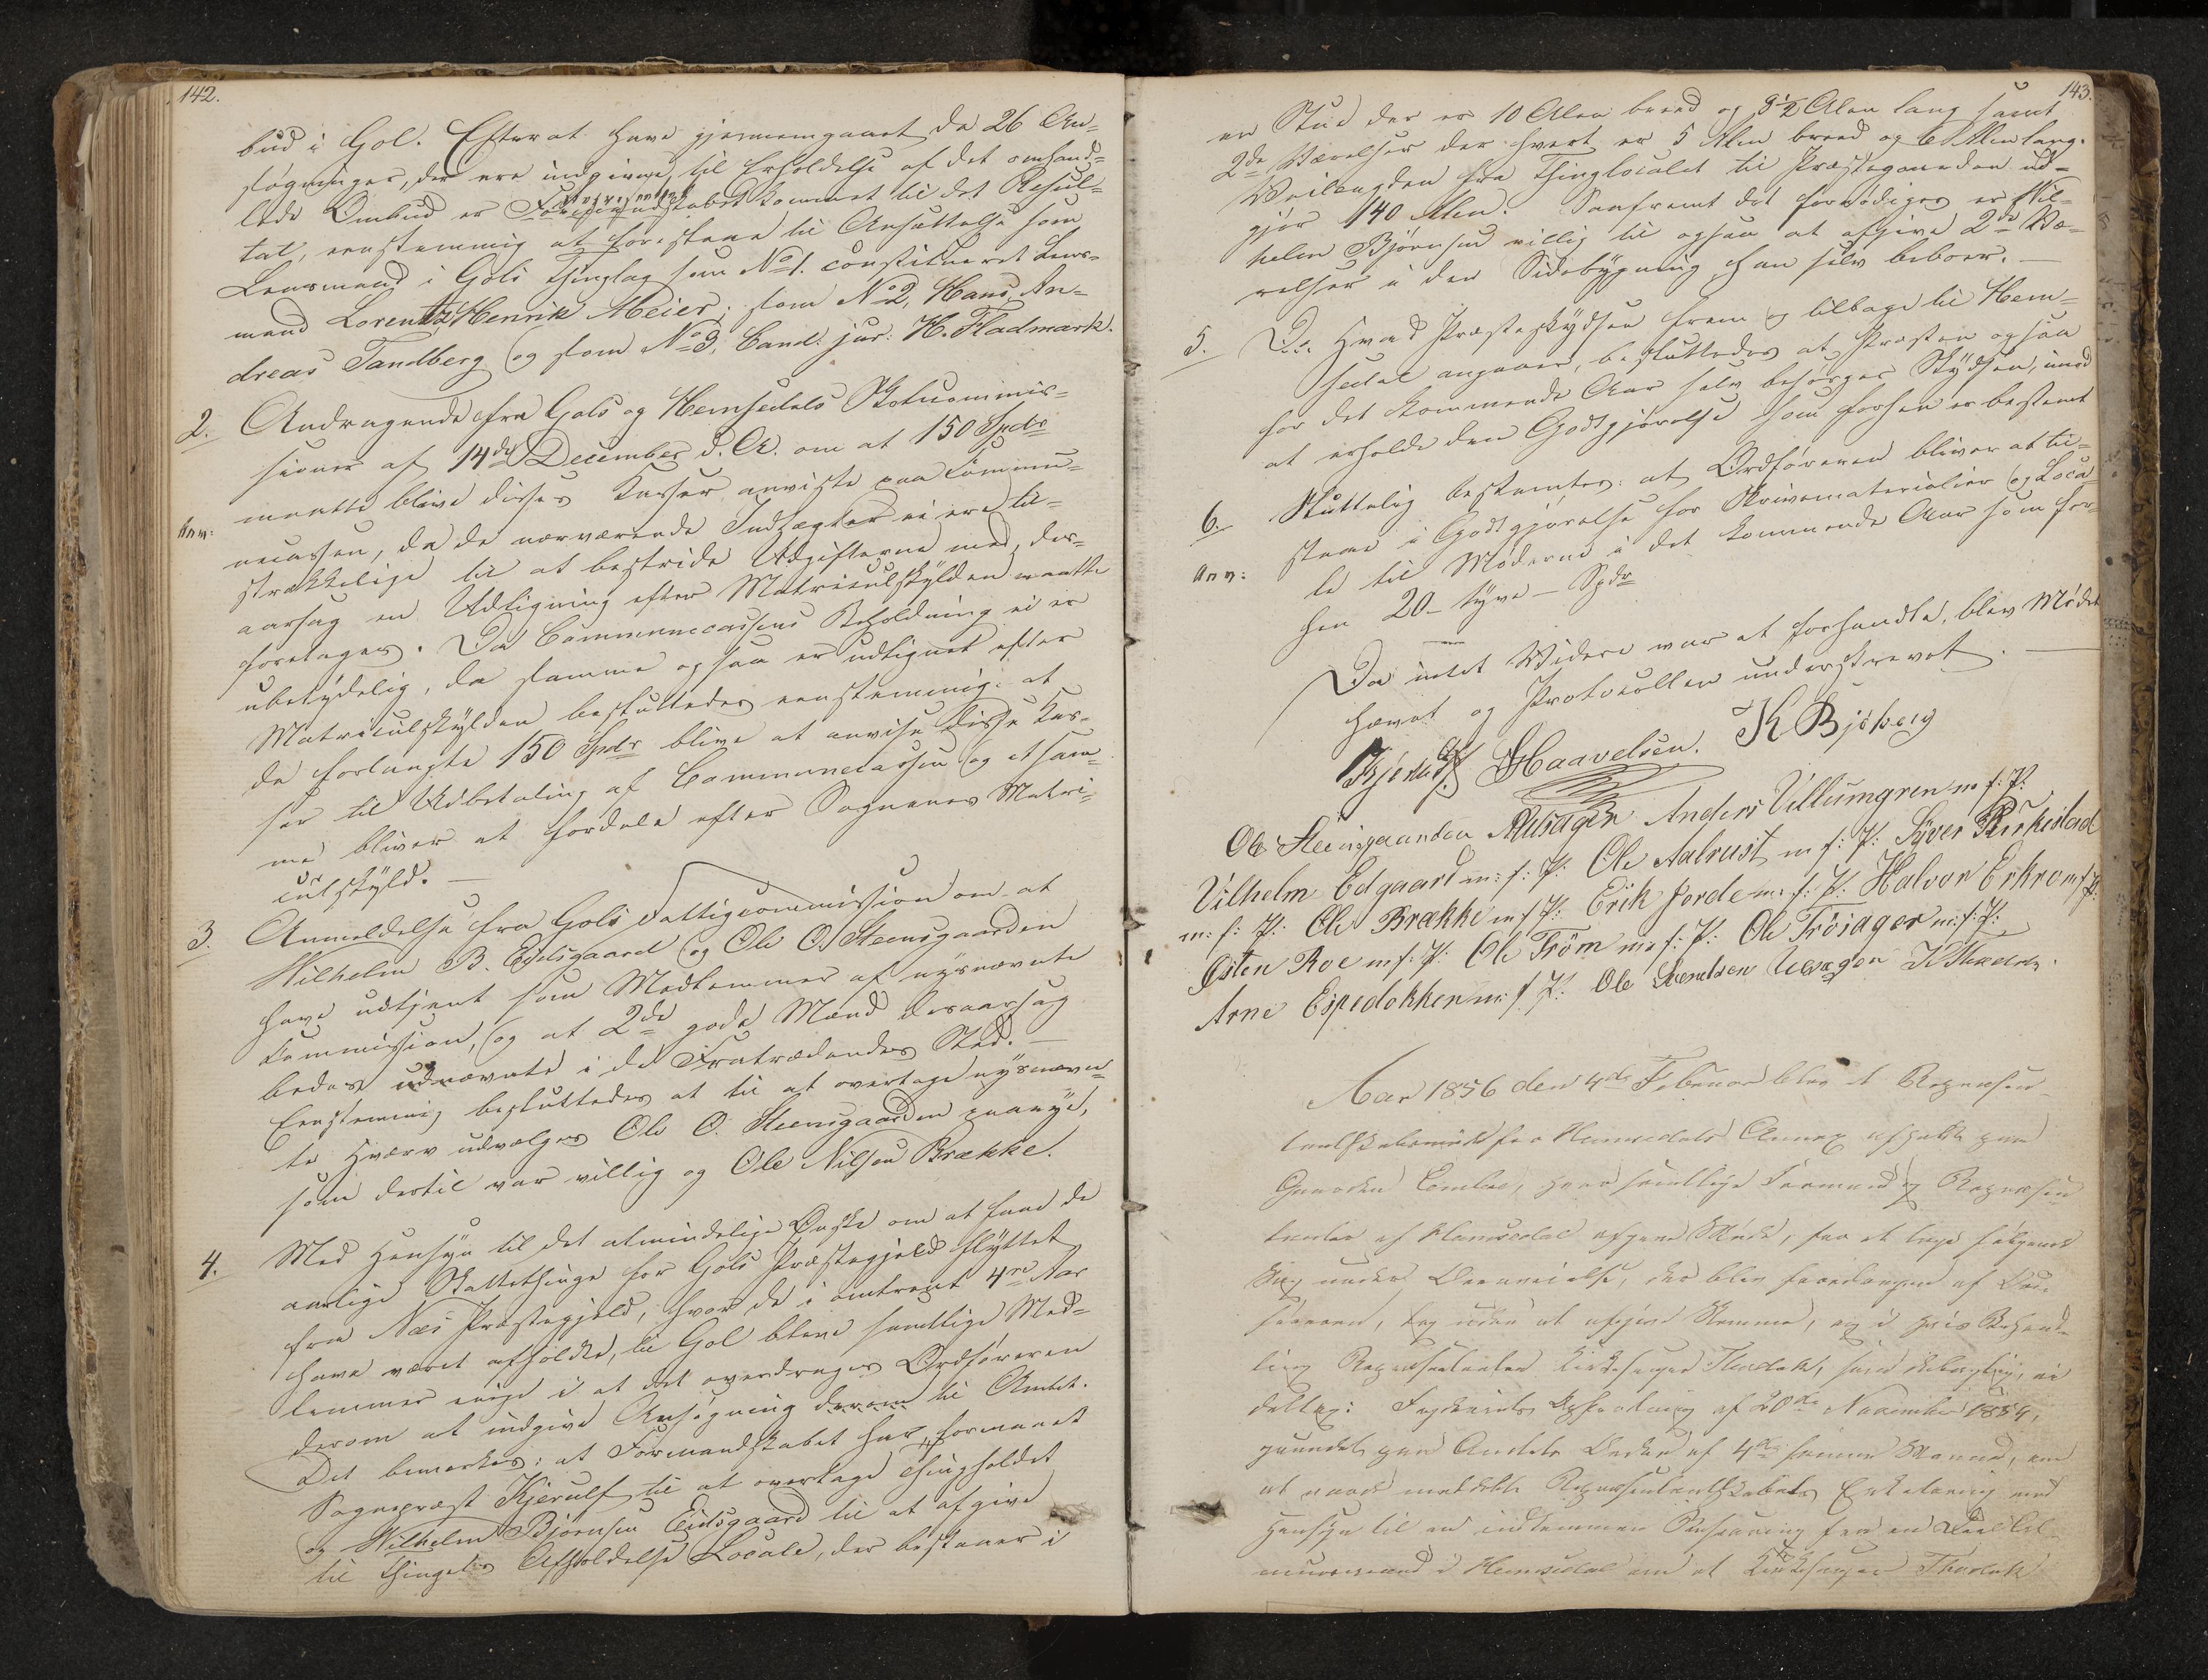 142.
bud i Gol. Efterat have gjennemgaaet de 26 An-
søgninger, der ere indgivne til Erholdelse af det omhand-
lede Ombud er Formandskabet kommet til det Resul-
tat, eenstemmig at foreslaae til Ansættelse som
Lensmand i Gols Thinglag som No 1. constitueret Lens-
mand Lorentz Henrik Meier; som No 2, Hans An-
dreas Tandberg og som No 3, Cand: jur: H. Fladmark.
2. Andragende fra Gols og Hemsedals Skolecommis-
sioner af 14de December d. A. om at 150 Spdr
maatte blive disses Kasser anviste paa Commu-
Anv:
necassen, da de nærværende Indtægter ei ere til-
strækkelige til at bestride Udgifterne med, des-
aarsag en Udligning efter Matriculskylden maatte
foretages. Da Communecassens Beholdning ei er
ubetydelig, da samme ogsaa er udlignet efter
Matriculskylden besluttedes eenstemmig: at
de forlangte 150 Spdr blive at anvise disse Kas-
ser til Udbetaling af Communecassen og at sam-
me bliver at fordele efter Sognenes Matri-
culskyld. —
3. Anmeldelse fra Gols Fattigcommission om at
Wilhelm B. Eidsgaard og Ole O. Steensgaarden
have udtjent som Medlemmer af nysnævnte
Commission, og at 2de gode Mænd desaarsag
bedes udnævnte i de Fratrædendes Sted. —
Eenstemmig besluttedes at til at overtage nysnævn-
te Hværv udvælges Ole O. Steensgaarden paanye,
som dertil var villig og Ole Nilsen Brække.
4. Med Hensyn til det almindelige Ønske om at faae de
aarlige Skattethinge for Gols Præstegjeld flyttet
fra Næs Præstegjeld, hvor de i omtrent 4re Aar
have været afholdte, til Gol bleve samtlige Med-
lemmer enige i at det overdrages Ordføreren
derom at indgive Ansøgning derom til Amtet.
Det bemærkes: at Formandskabet har formaaet
Sognepræst Kjerulf til at overtage Thingholdet
og Wilhelm Bjørnsen Eidsgaard til at afgive
til Thingets Afholdelse Locale, der bestaaer i
143.
en Stue der er 10 Alen breed og 8 1/2 Alen lang samt
2de Værelser der hvert er 5 Alen breed og 6 Alen lang.
Veilengden fra Thinglocalet til Præstegaarden ud-
gjør 140 Alen. Saafremt det fornødiges er Wil-
helm Bjørnsen villig til ogsaa at afgive 2de Væ-
relser i den Sidebygning han selv beboer. —
5. Hvad Præsteskydsen frem og tilbage til Hem-
sedal angaaer, besluttedes at Præsten ogsaa
for det kommende Aar selv besørger Skydsen, imod
at erholde den Godtgjørelse som forhen er bestemt
6. Sluttelig bestemtes: at Ordføreren bliver at til-
staae i Godtgjørelse for Skrivematerialier og Loca-
Anv:
le til Møderne i det kommende Aar som for-
hen 20 - tyve - Spdr
Da intet Videre var at forhandle, blev Mødet
hævet og Protocollen underskrevet. —
Kjerulf. Haavelsen. K Bjøberg
Ole Steensgaarden Anders Villumgren m: f: P:
Vilhelm Edgaard m: f: P: Ole Aalrust m f: P: Syver Kirkestad
m: f: P: Ole Brække m f P: Erik Jorde m: f: P: Halvor Erkron m f P:
Østen Roe m f: P: Ole Trøm m: f: P: Ole Trøsager m: f: P:
Arne Espedokken m: f P: Ole
Aar 1856 den 4de Februar blev et Repræsen-
tantskabsmøde for Hemsedals Annex afholdt paa
Gaarden, hvor samtlige Formænd og Repræsen
tanter af Hemsedal afgave Møde, for at tage følgende
Sag under Overveielse, der blev foredragen af Ord-
føreren, dog uden at afgive Stemme, og i hvis Behand-
ling Repræsentanten Kirkesanger, ei
deeltog: af 20de November 1854,
grundet paa Amtets Ordre af 4de samme Maaned, om
at Repræsentantskabets Erklæring med
Hensyn til en indkommen Ansøgning fra en Deel
i Hemsedal om at Kirkesanger